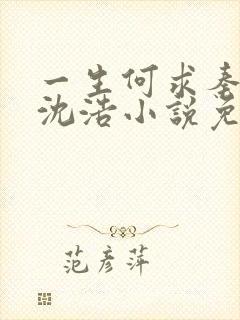 一生何求秦
沈浩小說免
范彥萍